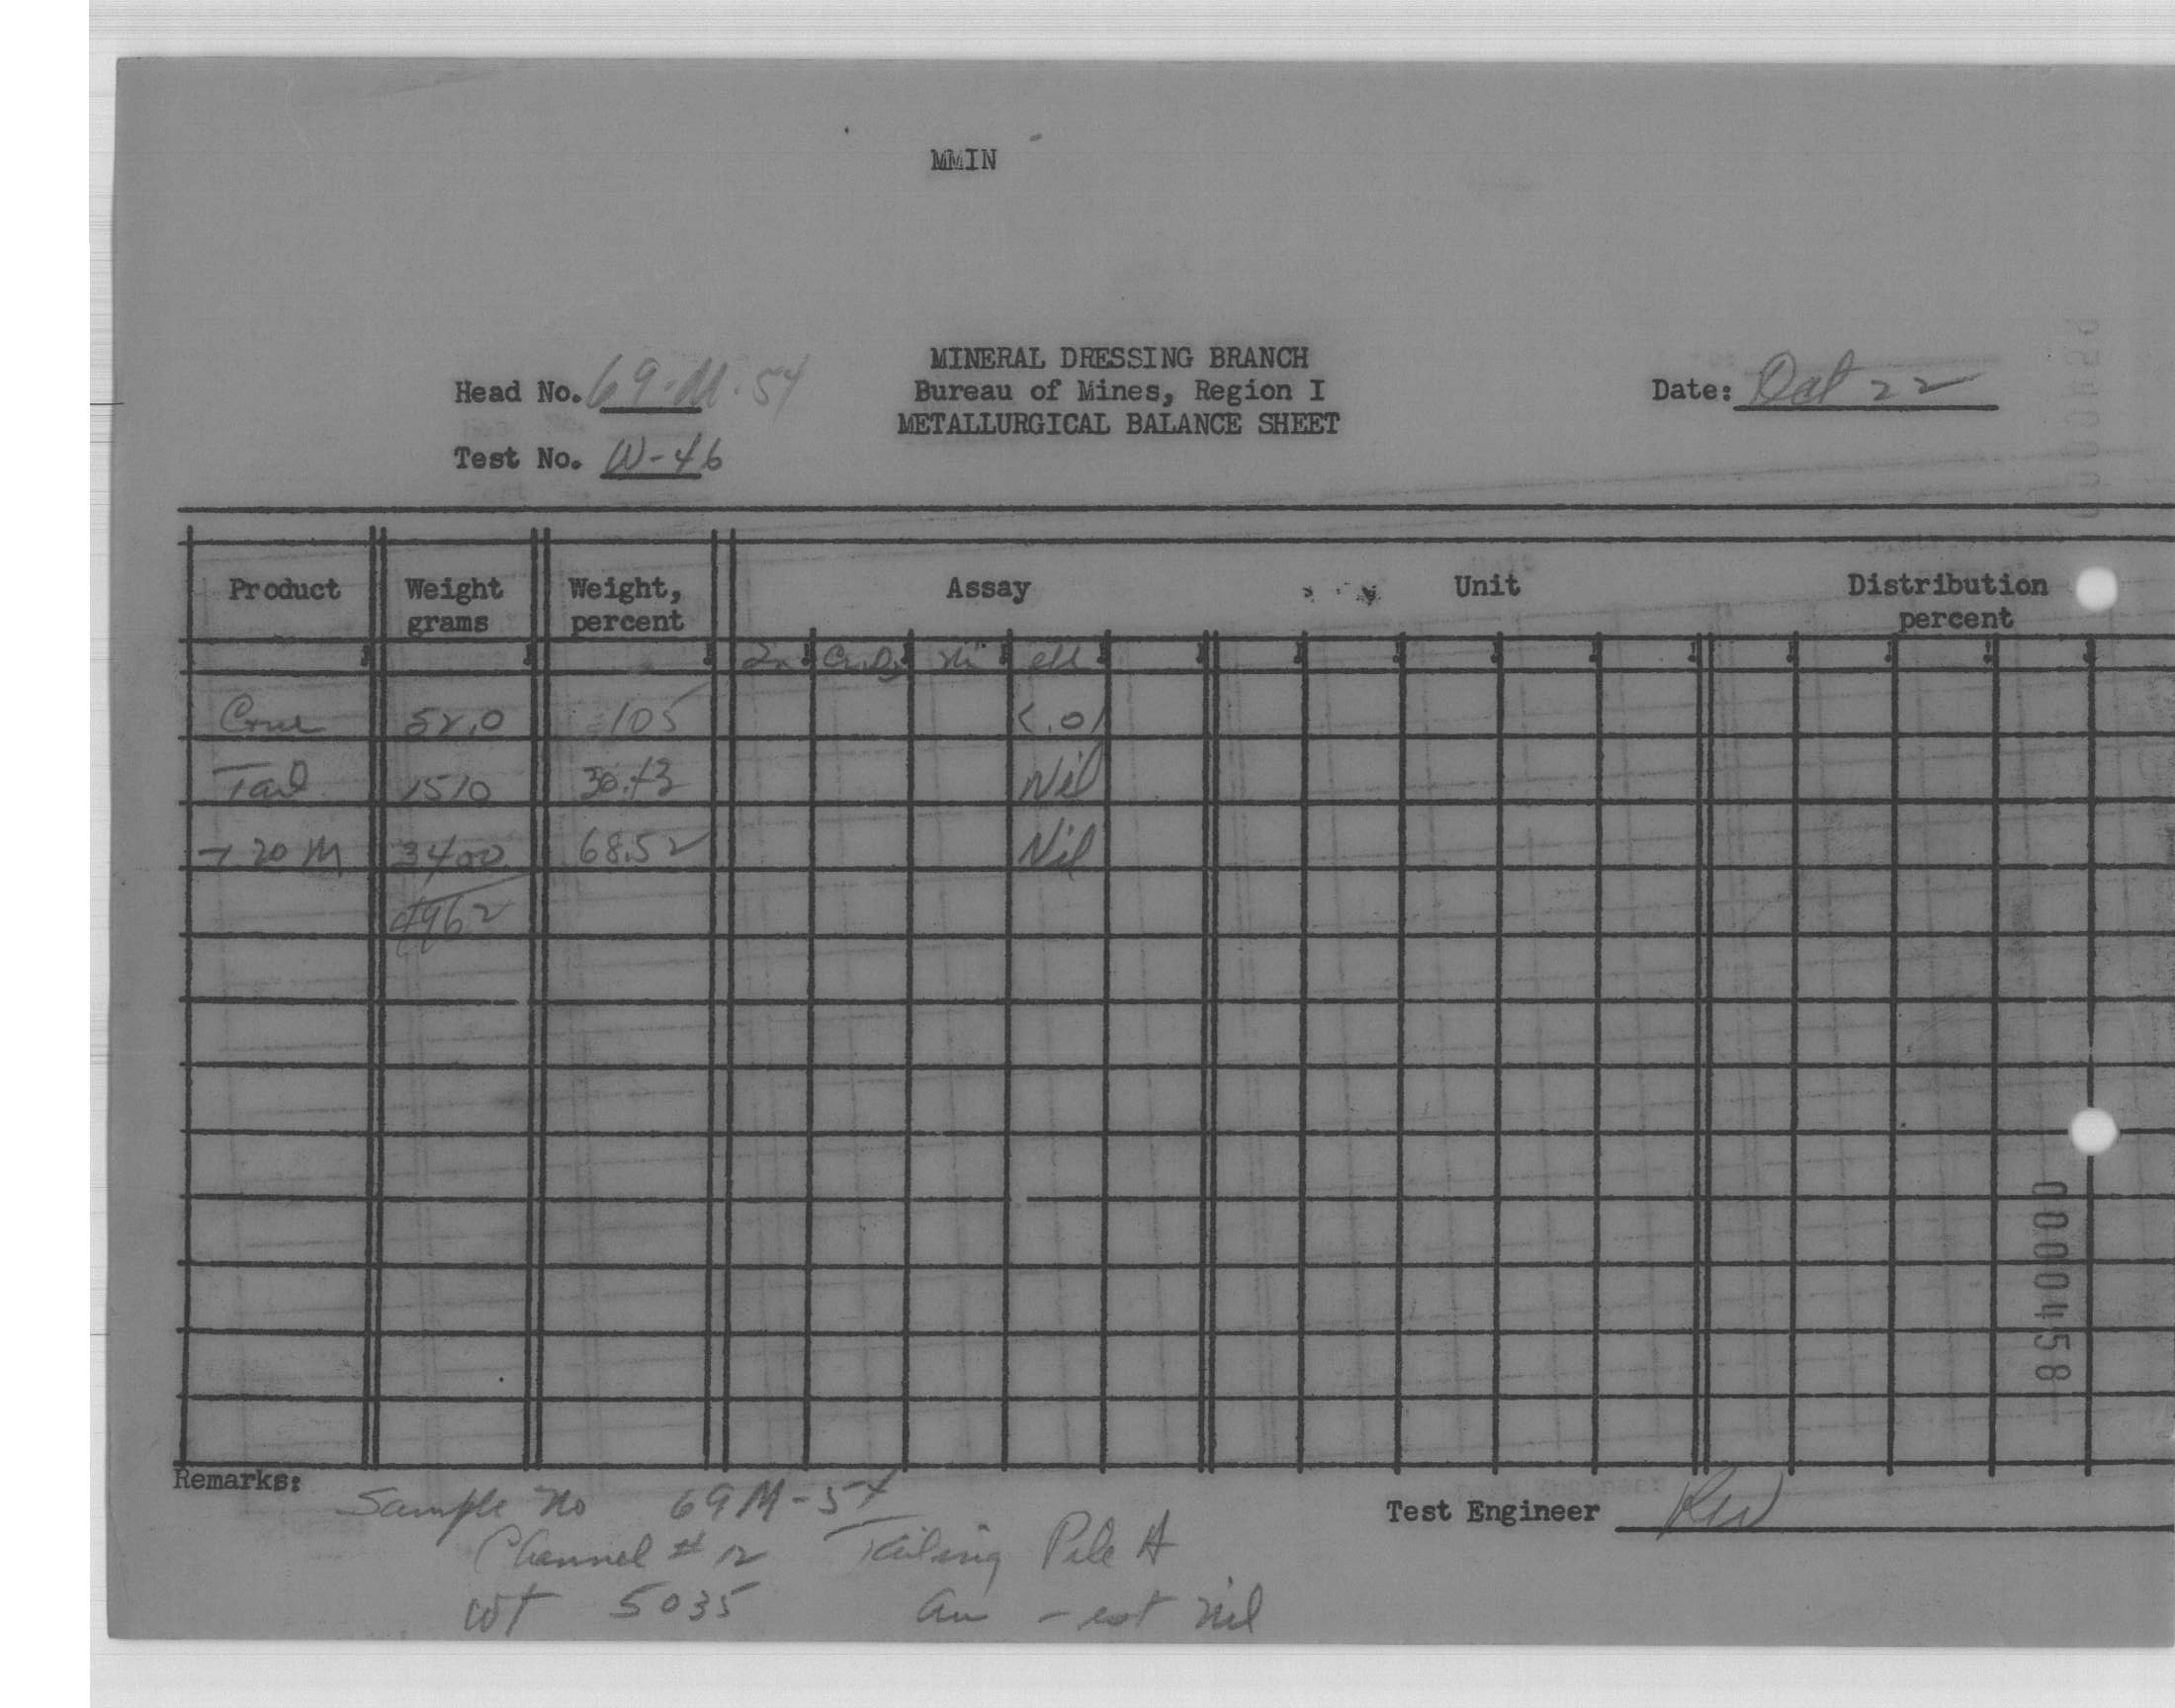 MMIN
MINERAL DRESSING BRANCH
Head No. 69-M-54 Bureau of Mines, Region I Date: Oct 22
METALLURGICAL BALANCE SHEET
Test No. W-46
Product Weight grams Weight, percent Assay Unit Distribution percent
Conc 52.0 105 <.01
Tail 1510 30.43 Nil
+20 M 3400 68.52 Nil
4962
Remarks:
Sample No 69M-54
Test Engineer RW
Channel # 12 Tailing Pile A
Wt 5035 Au - est Nil
0000458